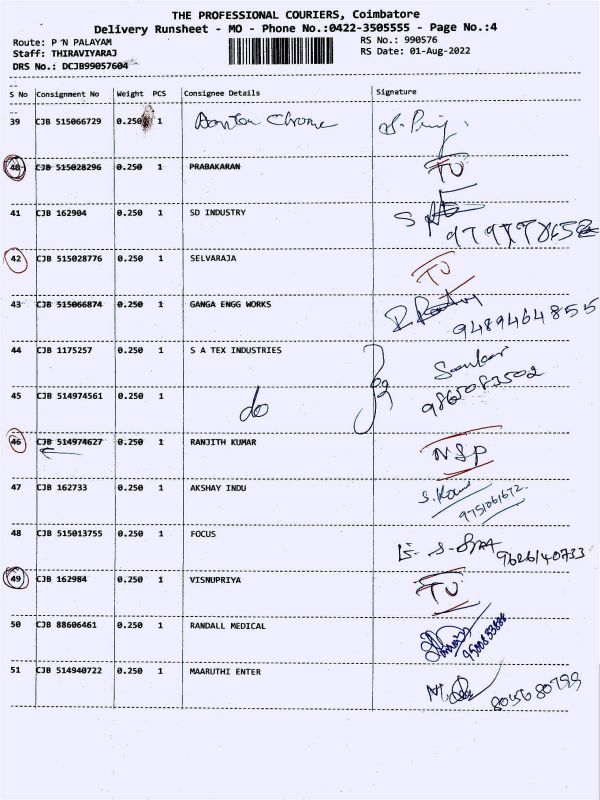 THE PROFESSIONAL COURIERS, Coimbatore
Delivery Runsheet - MO - Phone No.:0422-3505555 - Page No.:4
Route: P N PALAYAM RS No.: 990576
Staff: THIRAVIYARAJ RS Date: 01-Aug-2022
DRS No.: DCJB99057604
S No Consignment No Weight PCS Consignee Details Signature
39 CJB 515066729 0.250 1 Chrome
40 CJB 515028296 0.250 1 PRABAKARAN TU
41 CJB 162904 0.250 1 SD INDUSTRY
42 CJB 515028776 0.250 1 SELVARAJA TU
43 CJB 515066874 0.250 1 GANGA ENGG WORKS
9489464855
44 CJB 1175257 0.250 1 S A TEX INDUSTRIES
45 CJB 514974561 0.250 1 do 9865083502
46 CJB 514974627 0.250 1 RANJITH KUMAR NSP
47 CJB 162733 0.250 1 AKSHAY INDU
9751061672
48 CJB 515013755 0.250 1 FOCUS
9626140733
49 CJB 162984 0.250 1 VISNUPRIYA TU
50 CJB 88606461 0.250 1 RANDALL MEDICAL
51 CJB 514940722 0.250 1 MAARUTHI ENTER
8015680799